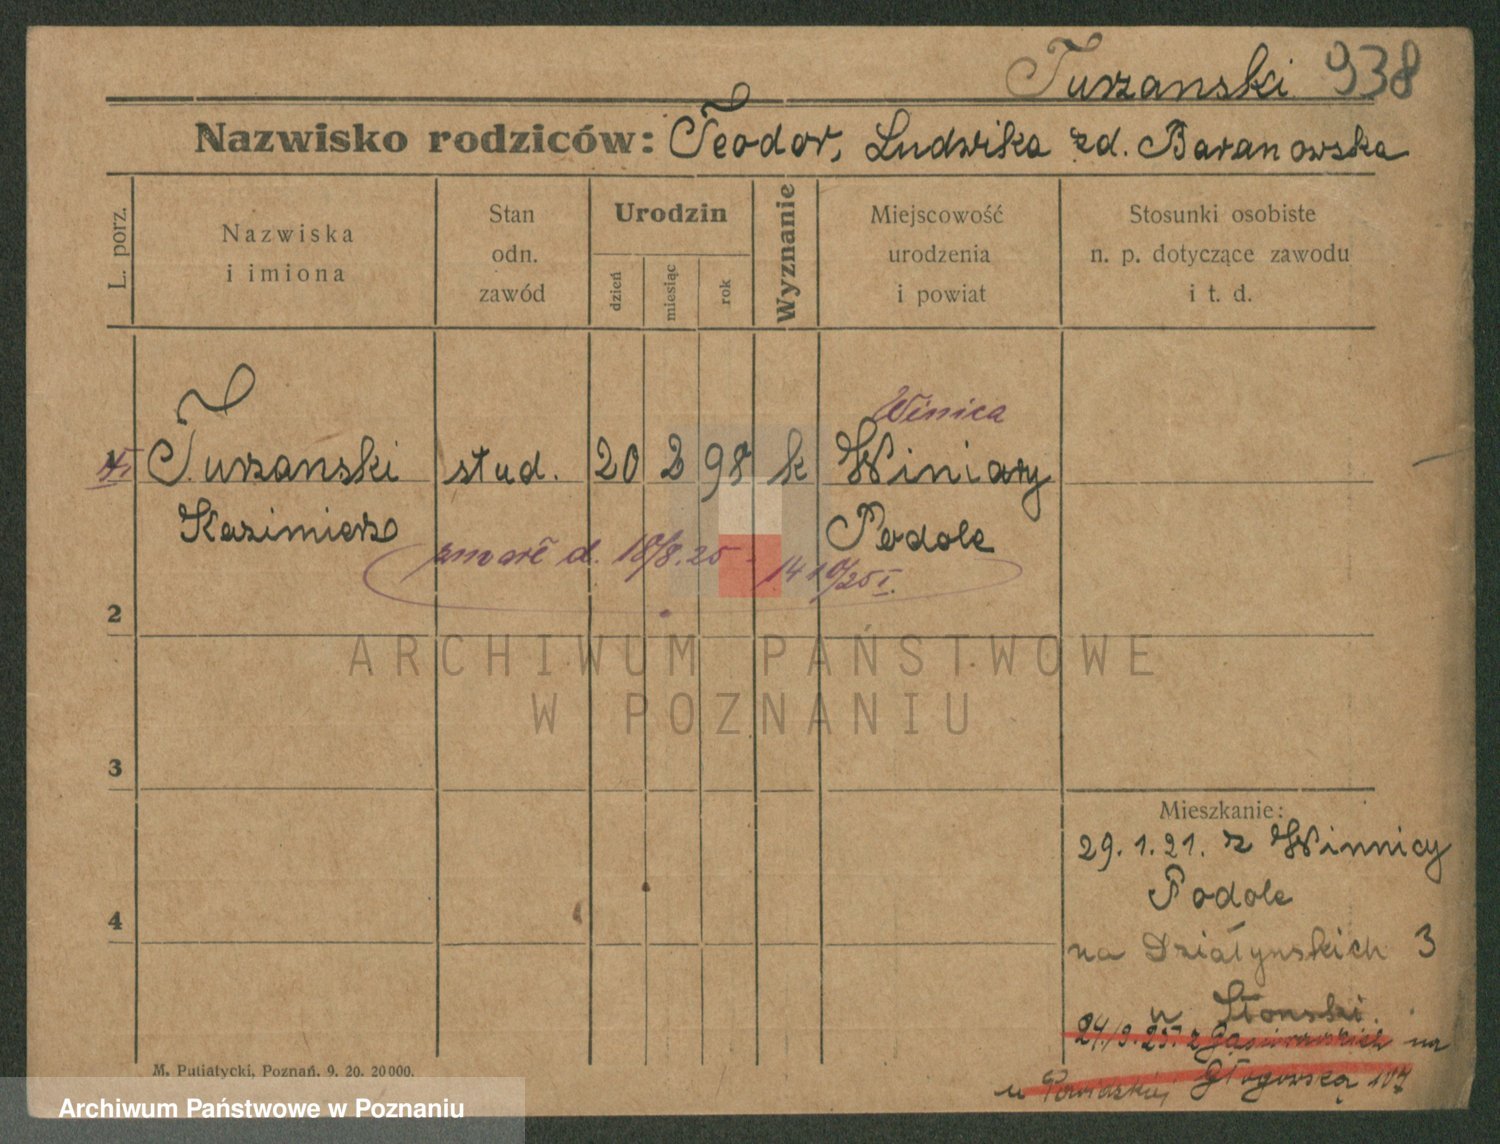 Turzanski 938
Nazwisko rodziców: Teodor, Ludwika zd. Baranowska
L. porz.
Nazwiska
i imiona
Stan
odn.
zawód
Urodzin
dzień
miesiąc
rok
Wyznanie
Miejscowość
urodzenia
i powiat
Stosunki osobiste
n. p. dotyczące zawodu
i t. d.
Winica
Turzanski stud. 20 2 98 k Winiary
Kazimierz Podole
zmarł d. 10/8.25 -
2
ARCHIWUM PAŃSTWOWE
W POZNANIU
3
Mieszkanie:
29.1.21. z Winnicy
Podole
4
na Działynskich 3
u Słonski.
24/9.25. z Gąsiorowskich na
Głogowską 107
M. Putiatycki, Poznań. 9. 20. 20000.
Archiwum Państwowe w Poznaniu